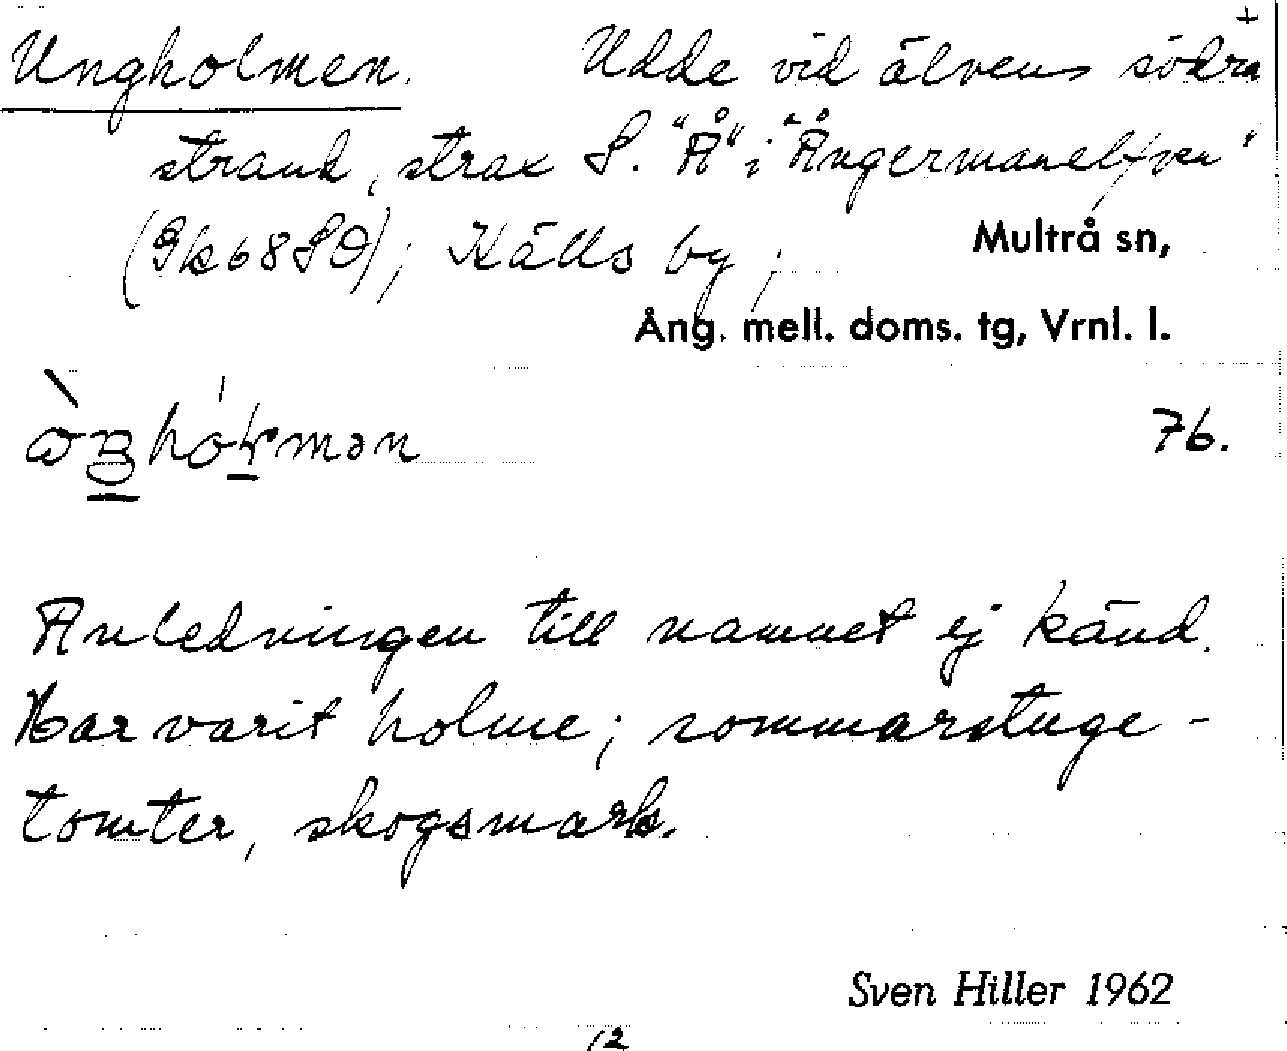 Ungholmen. Udde vid älvens södra +
strand, strax S. "Å" i "Ångermanelfven"
(Gk 68 SO); Källs by; Multrå sn,
Ång. mell. doms. tg, Vrnl. l.
76.
Anledningen till namnet ej känd.
Har varit holme; sommarstuge-
tomter, skogsmark.
Sven Hiller 1962
12